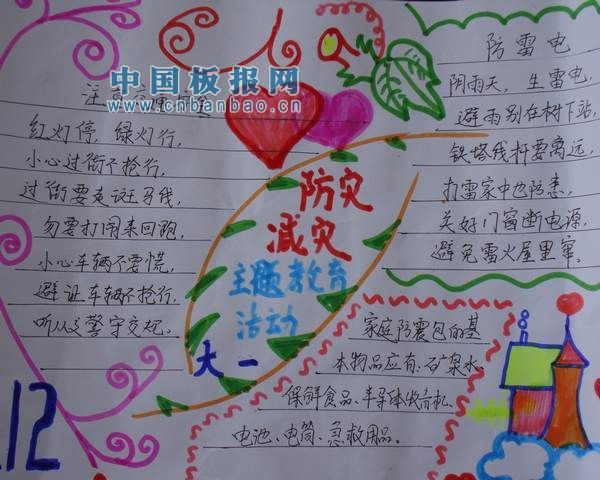 中国板报网
www.cnbanbao.cn
红灯停，绿灯行，
小心过街不抢行，
过街要走斑马线，
勿要打闹来回跑，
小心车辆不要慌，
避让车辆不抢行，
听从交警守交规。
防灾
减灾
主题教育
活动
大一
防雷电
阴雨天，生雷电，
避雨别在树下站，
铁塔线杆要离远，
打雷家中也防患，
关好门窗断电源，
避免雷火屋里窜。
家庭防震包的基
本物品应有：矿泉水、
保鲜食品、半导体收音机、
电池、电筒、急救用品。
.12